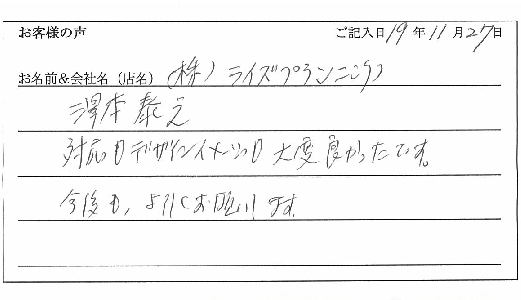 お客様の声 ご記入日 19 年 11 月 27 日
お名前&会社名(店名) (株) ライズプランニング
澤本 泰之
対応もデザインイメージも大変良かったです。
今後も、よろしくお願いします